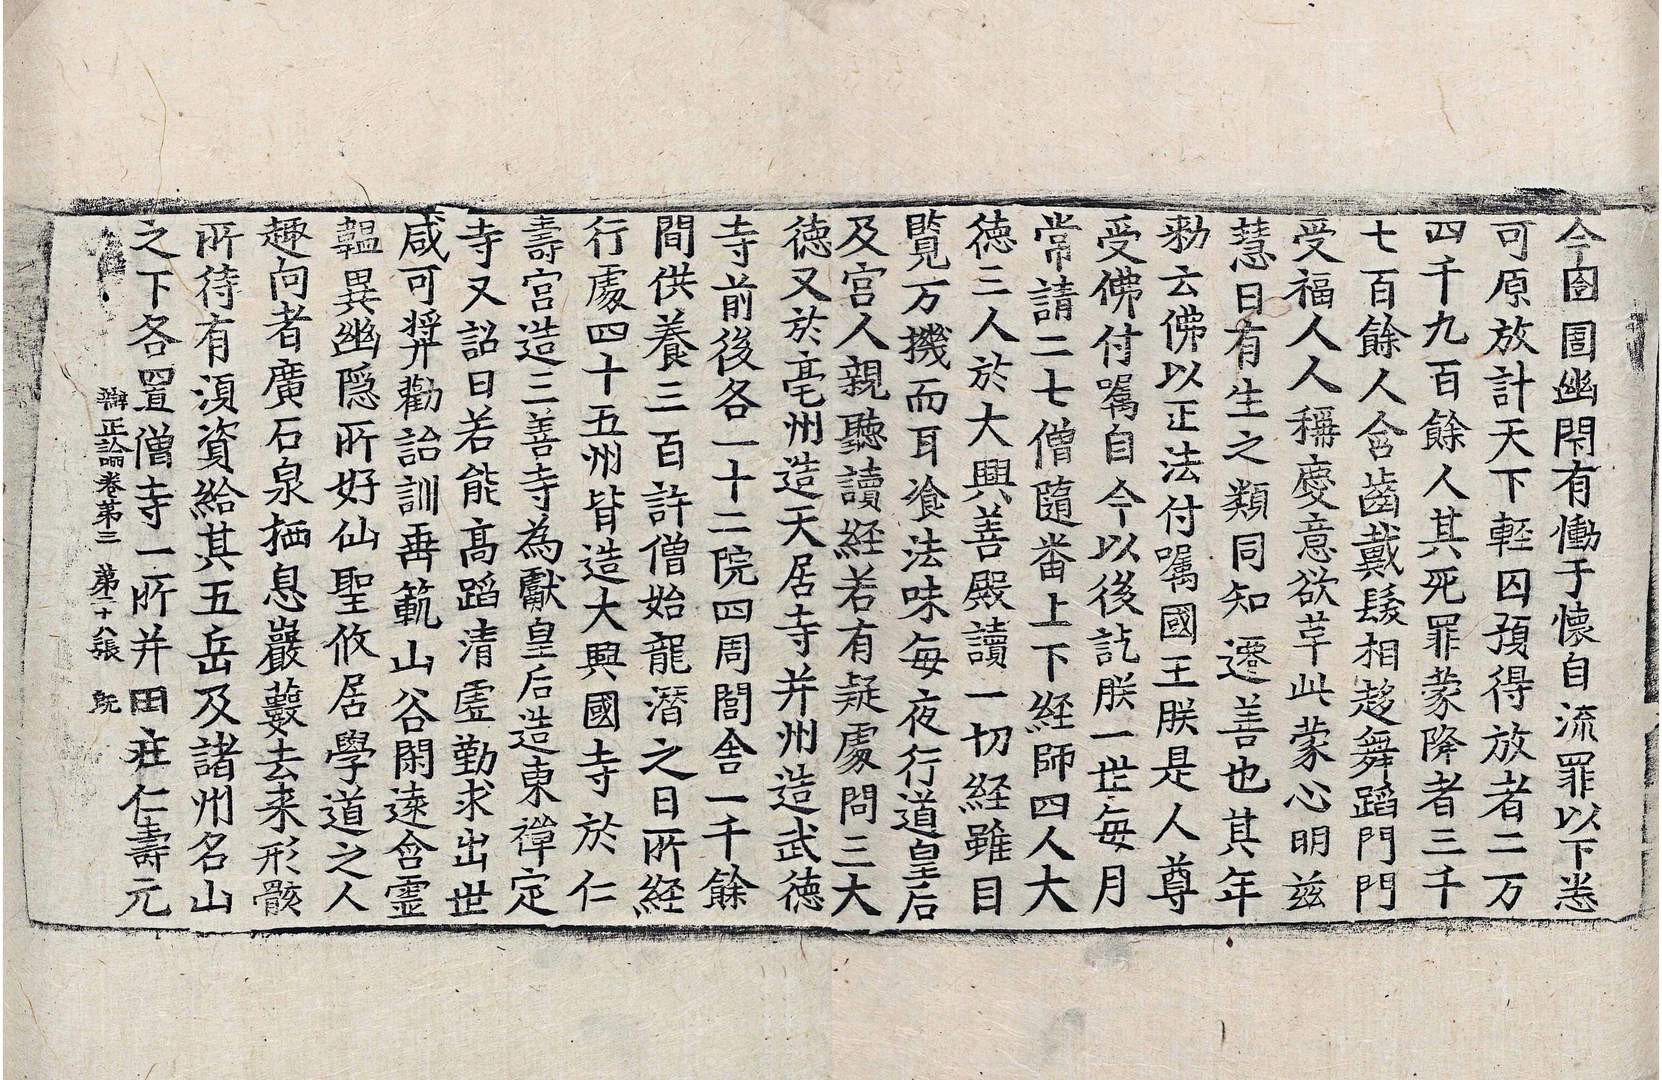 今囹圄幽閇有慟于懷自流罪以下悉
可原放計天下輕囚預得放者二万
四千九百餘人其死罪蒙降者三千
七百餘人含齒戴髮相趍舞蹈門門
受福人人稱慶意欲草此蒙心明兹
慧日有生之類同知遷善也其年
勑云佛以正法付囑國王朕是人尊
受佛付囑自今以後訖朕一世每月
常請二七僧隨番上下経師四人大
德三人於大興善殿讀一切経雖目
覽万機而耳飡法味每夜行道皇后
及宮人親聽讀経若有疑處問三大
德又於亳州造天居寺并州造武德
寺前後各一十二院四周閭舍一千餘
間供養三百許僧始龍潛之日所経
行處四十五州皆造大興國寺於仁
壽宮造三善寺為獻皇后造東禪定
寺又詔曰若能高蹈清虛勤求出世
咸可奬勸詒訓垂範山谷閑遠含靈
韞異幽隱所好仙聖攸居學道之人
趣向者廣石泉栖息巖藪去来形骸
所待有湏資給其五岳及諸州名山
之下各置僧寺一所并田庄仁壽元
辯正論卷第三 第二十八張 旣